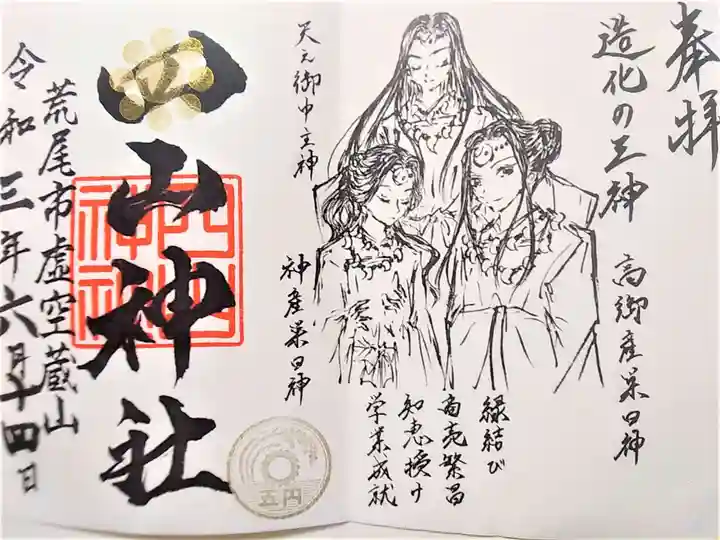 奉拝
造化の三神
高御産巣日神
天之御中主神
神産巣日神
縁結び
商売繁昌
知恵授け
学業成就
四山神社
四山
神社
五円
荒尾市虚空蔵山
令和三年六月十四日